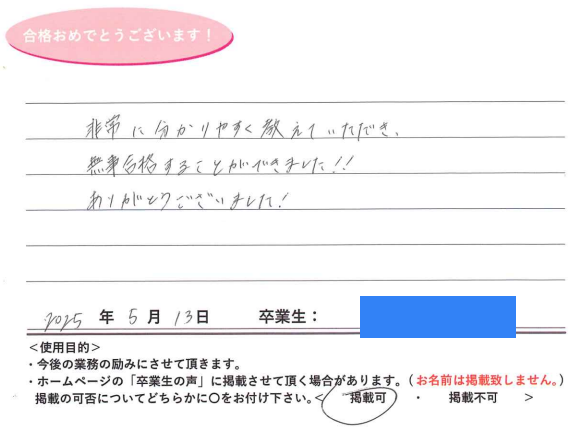 合格おめでとうございます！
非常に分かりやすく教えていただき、
無事合格することができました!!
ありがとうございました!
2025年5月13日 卒業生：
＜使用目的＞
・今後の業務の励みにさせて頂きます。
・ホームページの「卒業生の声」に掲載させて頂く場合があります。（お名前は掲載致しません。）
掲載の可否についてどちらかに〇をお付け下さい。＜ 掲載可 ・ 掲載不可 ＞